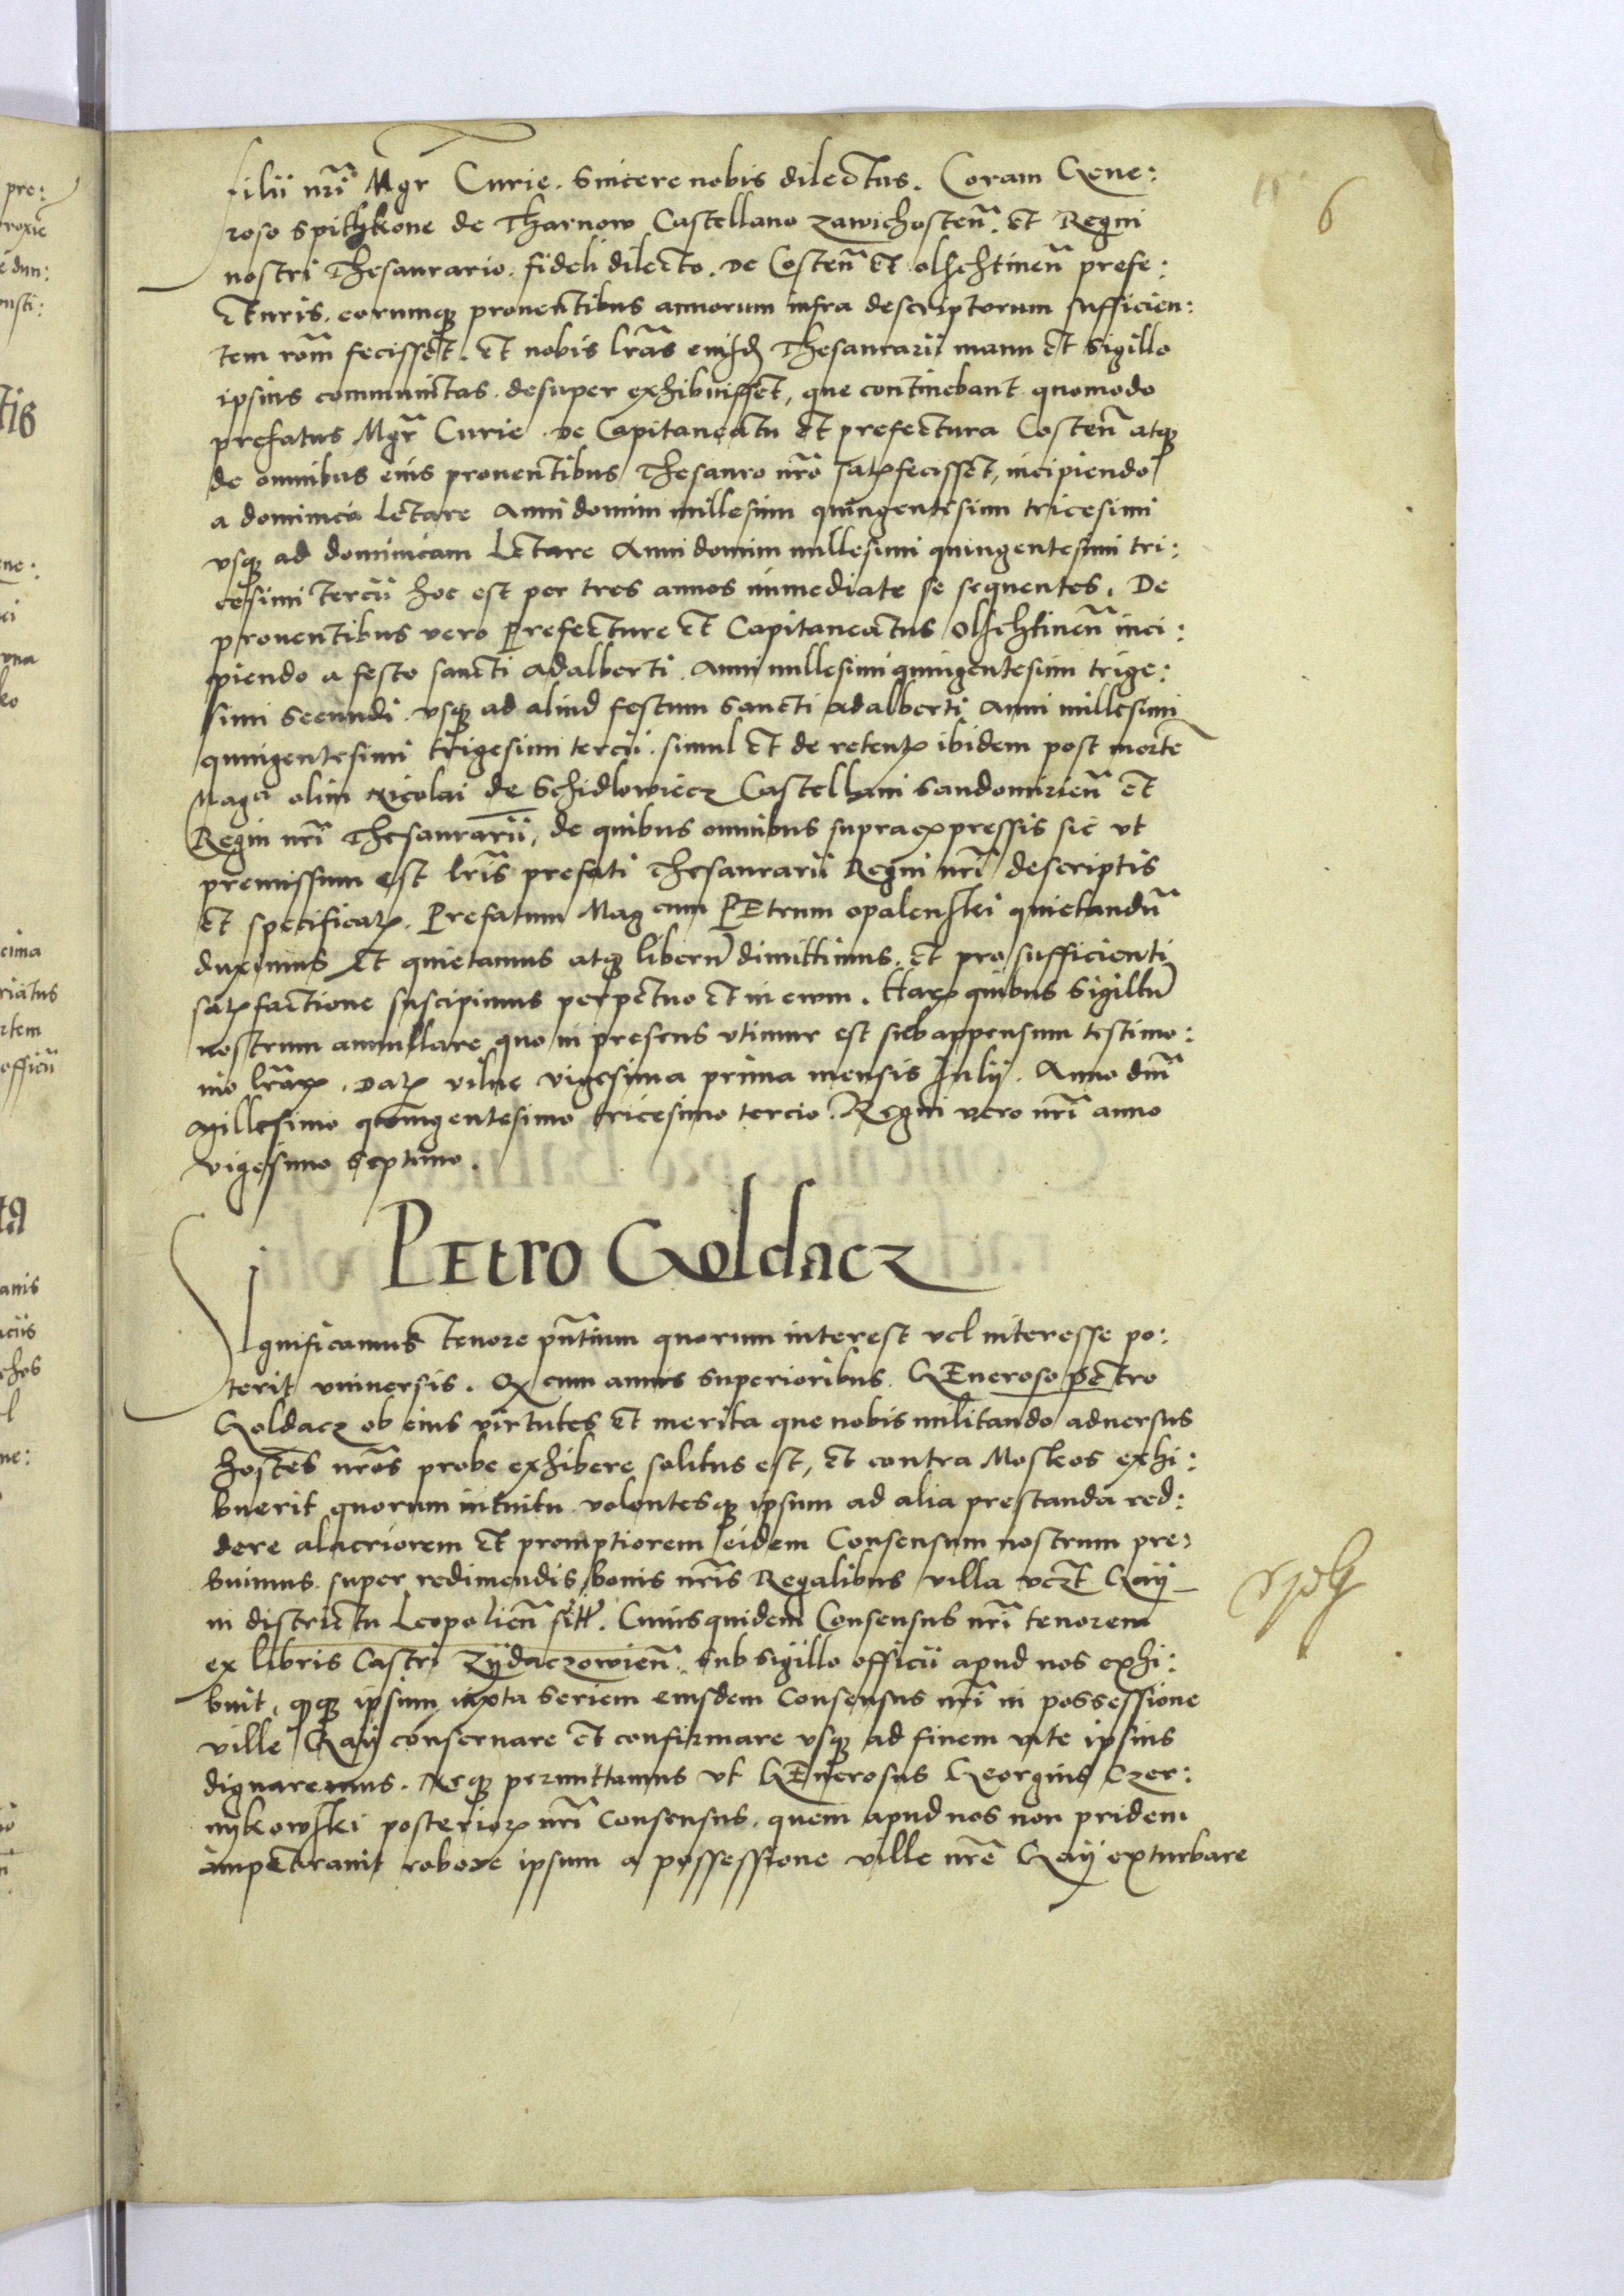 6
filii nr̃i Mgr Curie. sincere nobis dilectus. Coram Gene:
roso Spithkone de Tharnow Castellano Zawichosteñ. et Regni
nostri Thesaurario. fideli dilecto. de Costeñ et olschtineñ prefe:
cturis. eorumq; prouentibus annorum infra descriptorum sufficien:
tem rõm fecisset. et nobis lr̃as eiusd Thesaurarii manu et Sigillo
ipsius communitas. desuper exhibuisset, que continebant quomodo
prefatus Mgr̃ Curie. de Capitaneatu et prefectura Costeñ atq;
de omnibus eius prouentibus Thesauro nr̃o satꝫfecisset, incipiendo
a dominica letare Anni domini millesimi quingentesimi tricesimi
vsq; ad dominicam Letare Anni domini millesimi quingentesimi tri:
cesimi tercii hoc est per tres annos immediate se sequentes. De
prouentibus vero Prefecture et Capitaneatus Olschtineñ inci:
piendo a festo sancti adalberti. Anni millesimi quingentesimi trige:
simi Secundi. vsq; ad aliud festum Sancti Adalberti Anni millesimi
quingentesimi trigesimi tercii. simul et de retentꝫ ibidem post mortẽ
Magci olim Nicolai de Schidlowiecz Castellani Sandomirieñ et
Regni nr̃i Thesaurarii, de quibus omnibus supraexpressis sic vt
premissum est lr̃is prefati Thesaurarii Regni nr̃i descriptis
et specificatꝫ. Prefatum Mag cum PEtrum opalenski quietandũ
duximus Et quietamus atq; liberũ dimittimus. et pro sufficienti
satꝫfactione suscipimus perpetuo et in ewm. Harꝫ quibus Sigillũ
nostrum annullare quo in presens vtimur est subappensum testimo:
nio lr̃arꝫ. Datꝫ vilne vigesima prima mensis Julij. Anno dñi
Millesimo quingentesimo tricesimo tercio. Regni vero nr̃i anno
vigesimo septimo.
PEtro Goldacz
SIgnificamus tenore pñtium quorum interest vel interesse po:
terit vniuersis. Qꝫ cum annis superioribus. GEneroso petro
Goldacz ob eius virtutes et merita que nobis militando aduersus
hostes nr̃os probe exhibere solitus est, et contra Moskos exhi:
buerit quorum intuitu volentesq; ipsum ad alia prestanda red:
dere alacriorem et promptiorem eidem Consensum nostrum pre:
buimus. super redimendis bonis nr̃is Regalibus villa vczt Gay
in districtu Leopolieñ sitt. Cuiusquidem Consensus nr̃i tenorem
ex libris Castri Zydaczowieñ. sub sigillo officii apud nos exhi:
buit, qꝫ ipsum iuxta seriem eiusdem Consensus nr̃i in possessione
ville Gaij conseruare et confirmare vsq; ad finem vite ipsius
dignaremus. Neq; permittamus vt GEnerosus Georgius Czer:
nykowski posteriorꝫ nr̃i Consensus. quem apud nos non pridem
impetrauit robore ipsum a possessione ville nr̃e Gaij exturbare